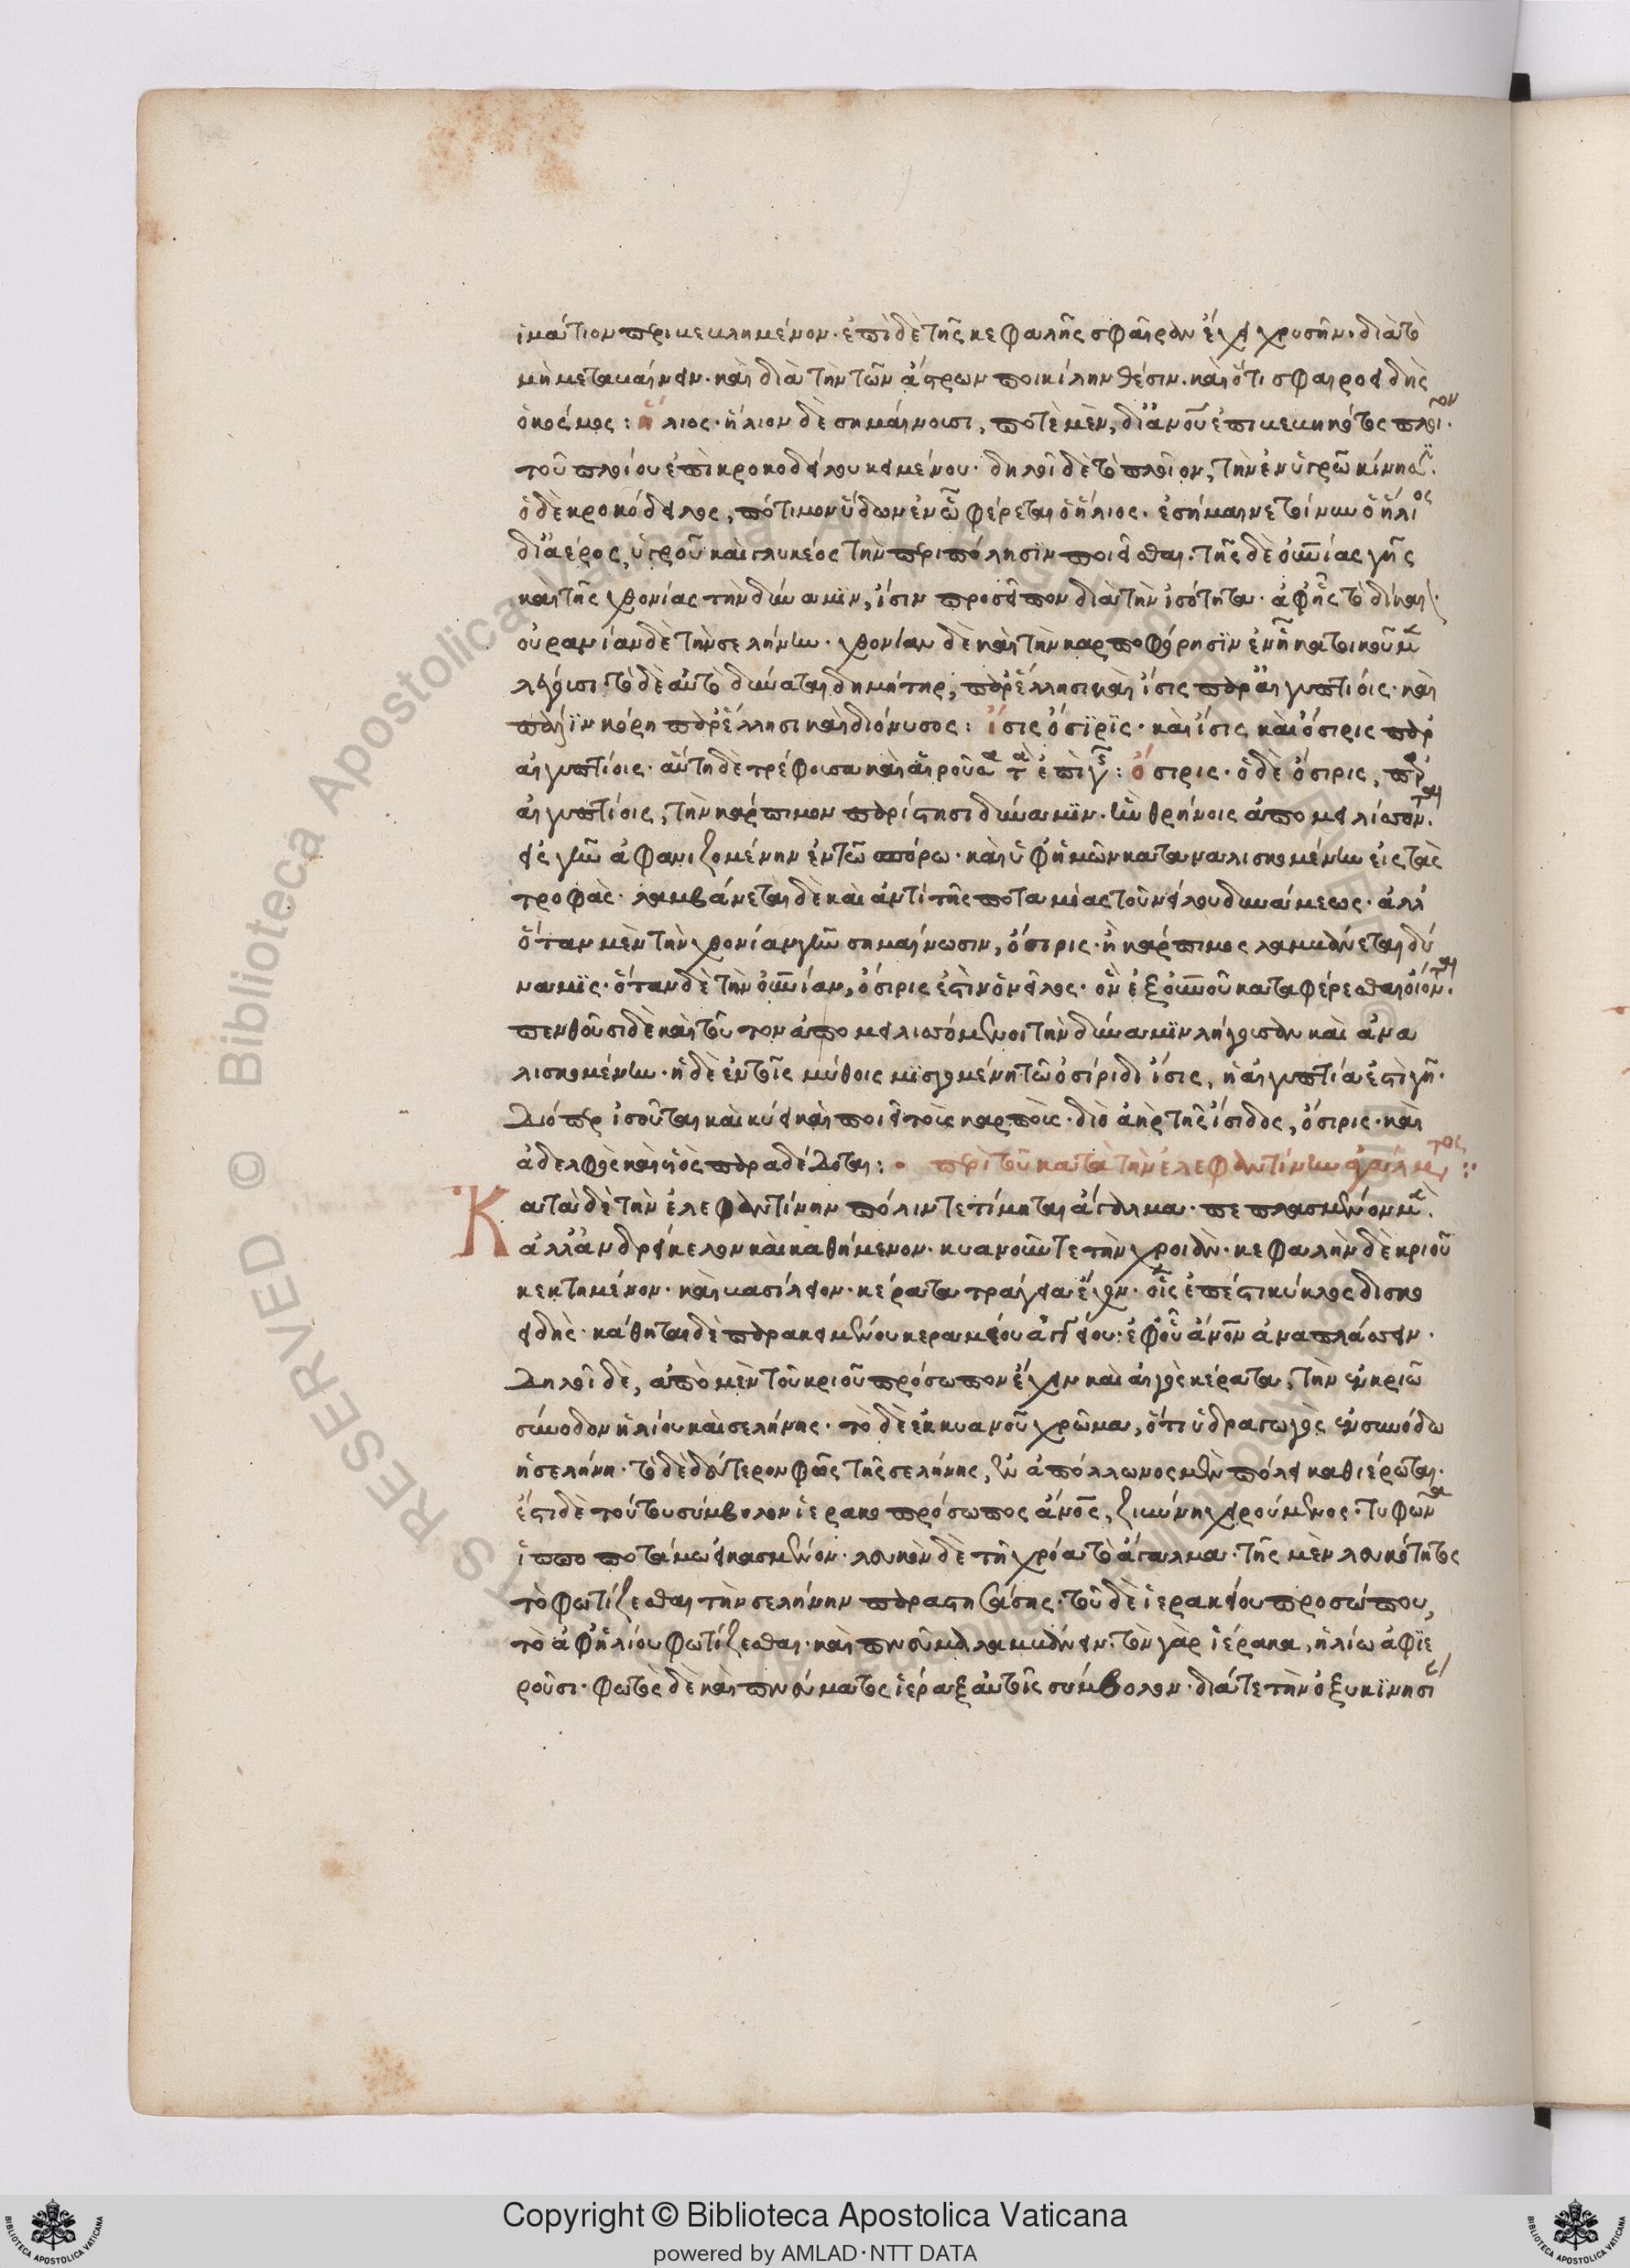 ἱμάτιον περικεκλημένον· ἐπὶ δὲ τῆς κεφαλῆς σφαῖραν ἔχει χρυσῆν· διὰ τὸ
μὴ μεταβαίνειν· καὶ διὰ τὴν τῶν ἄστρων ποικίλην θέσιν· καὶ ὅτι σφαιροειδὴς
ὁ κόσμος: ἥλιος· ἥλιον δὲ σημαίνουσι, ποτὲ μὲν, δι' ἀνοῦ ἐπιβεβηκότος πλοῖον·
τοῦ πλοίου ἐπὶ κροκοδείλου κειμένου· δηλοῖ δὲ τὸ πλοῖον, τὴν ἐν ὑγρῶ κίνησιν·
ὁ δὲ κροκόδειλος, πότιμον ὕδωρ ἐν ὧ φέρεται ὁ ἥλιος· ἐσήμαινε τοίνυν ὁ ἥλιος
δι' ἀέρος, ὑγροῦ καὶ γλυκέος τὴν περιπόλησιν ποιεῖσθαι· τῆς δὲ οὐνίας γῆς
καὶ τῆς χθονίας τὴν δύναμιν, ἴσιν προσεῖπον διὰ τὴν ἰσότητα· ἀφ' ἧς τὸ δίκαι·
οὐρανίαν δὲ τὴν σελήνην· χθονίαν δὲ καὶ τὴν καρποφόρησιν ἐν ἧ κατοικοῦμεν
λέγουσι· τὸ δὲ αὐτὸ δύναται δημήτηρ, παρ' ἕλλησι καὶ ἴσις παρ' αἰγυπτίοις· καὶ
πάλιν κόρη παρ' ἕλλησι καὶ διόνυσος: ἴσις ὄσιρις· καὶ ἴσις καὶ ὄσιρις παρ'
αἰγυπτίοις· αὕτη δὲ τρέφουσα καὶ αἴρουσα τὰ ἐπὶ γῆς: ὄσιρις· ὁ δὲ ὄσιρις, παρ'
αἰγυπτίοις, τὴν κάρπιμον παρίστησι δύναμιν· ἣν θρήνοις ἀπομειλίσσονται·
εἰς γῆν ἀφανιζομένην ἐν τῶ σπόρω· καὶ ὑφ' ἡμῶν καταναλισκομένην εἰς τὰς
τροφάς· λαμβάνεται δὲ καὶ ἀντὶ τῆς ποταμίας τοῦ νείλου δυνάμεως· ἀλλ'
ὅταν μὲν τὴν χθονίαν γῆν σημαίνωσιν, ὄσιρις· ἡ κάρπιμος λαμβάνεται δύ
ναμις· ὅταν δὲ τὴν οὐνίαν, ὄσιρις ἐστὶν ὁ νεῖλος· ὃν ἐξ οὐνοῦ καταφέρεσθαι οἴονται·
πενθοῦσι δὲ καὶ τοῦτον ἀπομειλισσόμενοι τὴν δύναμιν λήγουσαν καὶ ἀνα
λισκομένην· ἡ δὲ ἐν τοῖς μύθοις μισγομένη τῶ ὀσίριδι ἴσις, ἡ αἰγυπτία ἐστὶ γῆ·
διόπερ ἰσοῦται καὶ κύει καὶ ποιεῖ τοὺς καρπούς· διὸ ἀνὴρ τῆς ἴσιδος, ὄσιρις· καὶ
ἀδελφὸς καὶ υἱὸς παραδέδοται: · περὶ τοῦ κατὰ τὴν ἐλεφαντίνην ἀγάλματος:
Κατὰ δὲ τὴν ἐλεφαντίνην πόλιν τετίμηται ἄγαλμα· πεπλασμένον μὲν·
ἀλλ' ἀνδρείκελον καὶ καθήμενον· κυανοῦν τε τὴν χροιάν· κεφαλὴν δὲ κριοῦ
κεκτημένον· καὶ βασίλειον· κέρατα τράγεια ἔχον· οἷς ἔπεστι κύκλος δισκο
ειδής· κάθηται δὲ παρακειμένου κεραμείου ἀγγείου· ἐφ' οὗ ἄνον ἀναπλάσσειν·
δηλοῖ δὲ, ἀπὸ μὲν τοῦ κριοῦ πρόσωπον ἔχειν καὶ αἰγὸς κέρατα, τὴν ἐν κριῶ
σύνοδον ἡλίου καὶ σελήνης· τὸ δὲ ἐκ κυανοῦ χρῶμα, ὅτι ὑδραγωγὸς ἐν συνόδω
ἡ σελήνη· τὸ δὲ δεύτερον φῶς τῆς σελήνης, ἐν ἀπόλλωνος μὲν πόλει καθιέρωται·
ἔστι δὲ τούτου σύμβολον ἱερακοπρόσωπος ἄνος, ζιβύνη χειρούμενος· τυφῶνα
ἱπποποτάμω εἰκασμένον· λευκὸν δὲ τῆ χρόα τὸ ἄγαλμα· τῆς μὲν λευκότητος
τὸ φωτίζεσθαι τὴν σελήνην παραστησάσης· τοῦ δὲ ἱερακείου προσώπου,
τὸ ἀφ' ἡλίου φωτίζεσθαι· καὶ πνεῦμα λαμβάνειν· τὸν γὰρ ἱέρακα, ἡλίω ἀφιε
ροῦσι· φωτὸς δὲ καὶ πνεύματος ἱέραξ αὐτοῖς σύμβολον· διά τε τὴν ὀξυκινησί
Copyright © Biblioteca Apostolica Vaticana
powered by AMLAD·NTT DATA